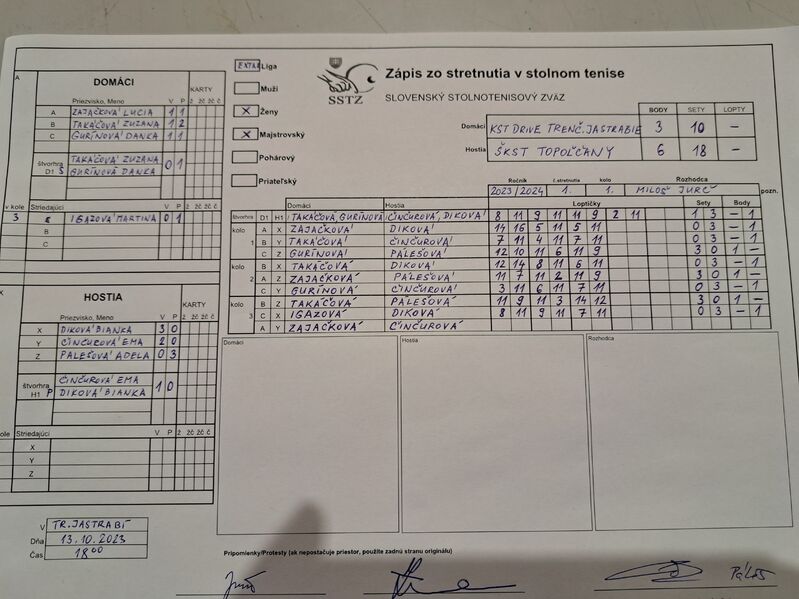 A
DOMÁCI
Priezvisko, Meno V P
KARTY
ž žč žč č
A ZAJAČKOVÁ LUCIA 1 1
B TAKÁČOVÁ ZUZANA 1 2
C GURÍNOVÁ DANKA 1 1
štvorhra D1 S
TAKÁČOVÁ ZUZANA 0 1
GURÍNOVÁ DANKA
v kole Striedajúci V P ž žč žč č
3 IGAZOVÁ MARTINA 0 1
B
C
X
HOSTIA
Priezvisko, Meno V P
KARTY
ž žč žč č
X DIKOVÁ BIANKA 3 0
Y ČINČUROVÁ EMA 2 0
Z PALEŠOVÁ ADELA 0 3
štvorhra H1 P
ČINČUROVÁ EMA 1 0
DIKOVÁ BIANKA
kole Striedajúci V P ž žč žč č
X
Y
Z
V TR. JASTRABÍ
Dňa 13.10.2023
Čas 18 00
EXTRA Liga
Muži
X Ženy
X Majstrovský
Pohárový
Priateľský
SSTZ
Zápis zo stretnutia v stolnom tenise
SLOVENSKÝ STOLNOTENISOVÝ ZVÄZ
BODY SETY LOPTY
Domáci KST DRIVE TRENČ. JASTRABIE 3 10 -
Hostia ŠKST TOPOĽČANY 6 18 -
Ročník č.stretnutia kolo Rozhodca
2023/2024 1. 1. MILOŠ JURČ pozn.
Domáci Hostia Loptičky Sety Body
štvorhra D1 H1 TAKÁČOVÁ, GURÍNOVÁ ČINČUROVÁ, DIKOVÁ 8 11 9 11 11 9 2 11 1 3 - 1
kolo A X ZAJAČKOVÁ DIKOVÁ 14 16 5 11 5 11 0 3 - 1
1 B Y TAKÁČOVÁ ČINČUROVÁ 7 11 4 11 7 11 0 3 - 1
C Z GURÍNOVÁ PALEŠOVÁ 12 10 11 6 11 9 3 0 1 -
kolo B X TAKÁČOVÁ DIKOVÁ 12 14 8 11 6 11 0 3 - 1
2 A Z ZAJAČKOVÁ PALEŠOVÁ 11 7 11 2 11 9 3 0 1 -
C Y GURÍNOVÁ ČINČUROVÁ 3 11 6 11 7 11 0 3 - 1
kolo B Z TAKÁČOVÁ PALEŠOVÁ 11 9 11 3 14 12 3 0 1 -
3 C X IGAZOVÁ DIKOVÁ 8 11 9 11 7 11 0 3 - 1
A Y ZAJAČKOVÁ ČINČUROVÁ
Domáci
Hostia
Rozhodca
Pripomienky/Protesty (ak nepostačuje priestor, použite zadnú stranu originálu)